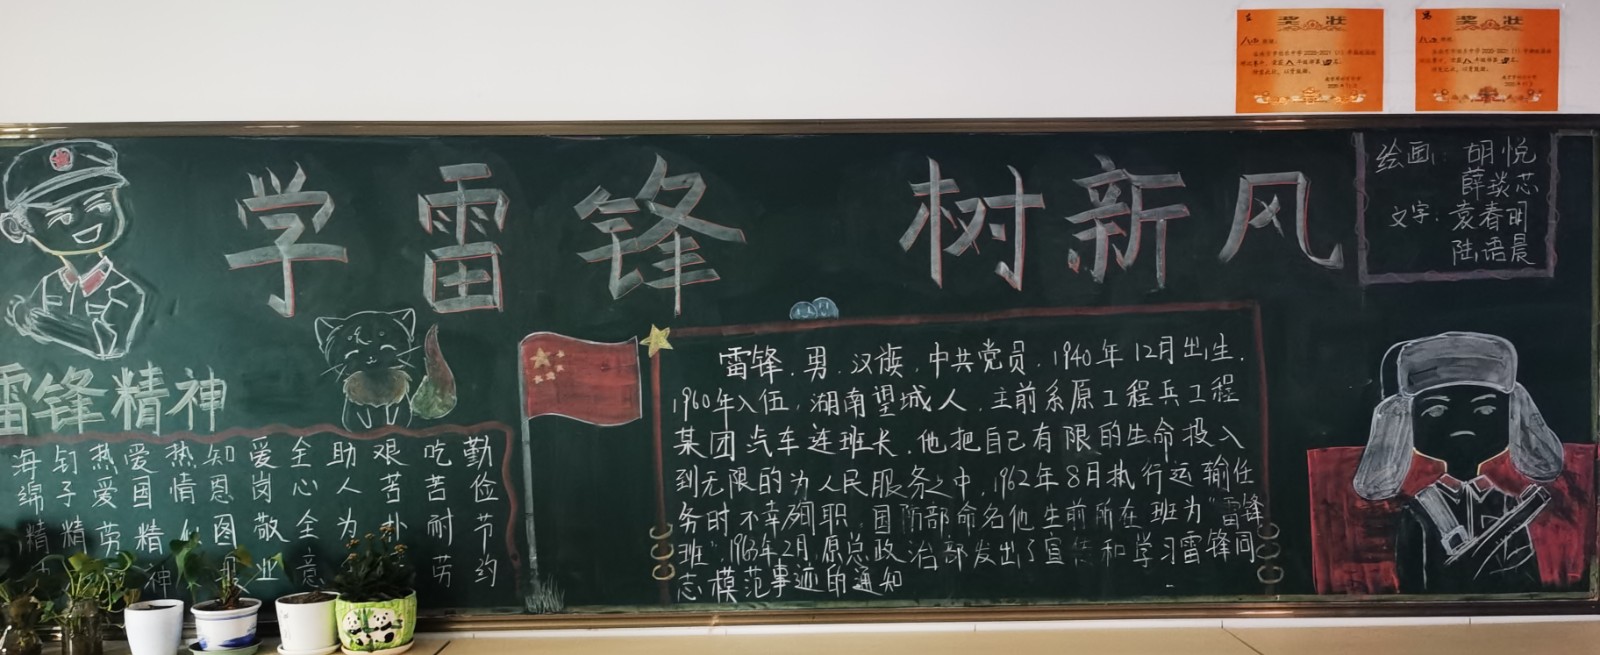 奖 状
奖 状
学雷锋 树新风
绘画: 胡悦
薛琰芯
文字: 袁春明
陆语晨
雷锋精神
勤俭节约
吃苦耐劳
艰苦朴
助人为
全心全意
爱岗敬业
知恩图
热情
爱国精神
热爱劳
钉子精
海绵精
雷锋，男，汉族，中共党员，1940年12月出生，
1960年入伍，湖南望城人，生前系原工程兵工程
某团汽车连班长，他把自己有限的生命投入
到无限的为人民服务之中，1962年8月执行运输任
务时不幸殉职，国防部命名他生前所在班为“雷锋
班”，1963年2月，原总政治部发出了宣传和学习雷锋同
志模范事迹的通知